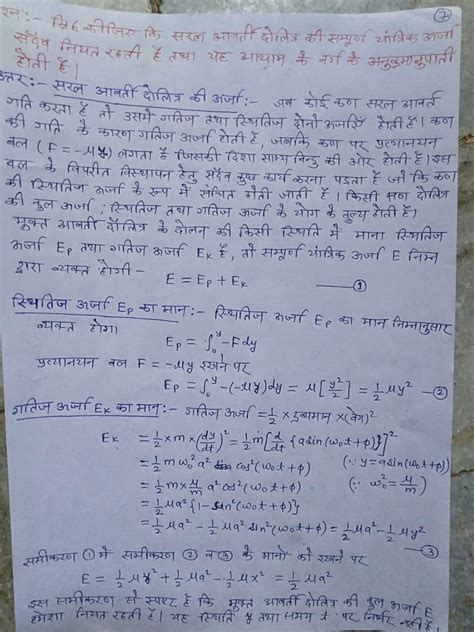 ⑦
प्रश्न:- सिद्ध कीजिए कि सरल आवर्ती दोलित्र की सम्पूर्ण यांत्रिक ऊर्जा
सदैव नियत रहती है तथा यह आयाम के वर्ग के अनुक्रमानुपाती
होती है।
उत्तर:- सरल आवर्ती दोलित्र की ऊर्जा:- जब कोई कण सरल आवर्त
गति करता है तो उसमें गतिज तथा स्थितिज दोनों ऊर्जाएँ होती हैं। कण
की गति के कारण गतिज ऊर्जा होती है, जबकि कण पर प्रत्यानयन
बल (F = -μy) लगता है जिसकी दिशा साम्य बिन्दु की ओर होती है। इस
बल के विपरीत विस्थापन हेतु सदैव कुछ कार्य करना पड़ता है जो कि कण
की स्थितिज ऊर्जा के रूप में संचित होती जाती है। किसी क्षण दोलित्र
की कुल ऊर्जा; स्थितिज तथा गतिज ऊर्जा के योग के तुल्य होती है।
मुक्त आवर्ती दोलित्र के दोलन की किसी स्थिति में माना स्थितिज
ऊर्जा Ep तथा गतिज ऊर्जा Ek है, तो सम्पूर्ण यांत्रिक ऊर्जा E निम्न
द्वारा व्यक्त होगी-
E = Ep + Ek — ①
स्थितिज ऊर्जा Ep का मान:- स्थितिज ऊर्जा Ep का मान निम्नानुसार
व्यक्त होगा।
Ep = ∫₀^y -Fdy
प्रत्यानयन बल F = -μy रखने पर
Ep = ∫₀^y -(-μy)dy = μ[y²/2] = 1/2 μy² — ②
गतिज ऊर्जा Ek का मान:- गतिज ऊर्जा = 1/2 × द्रव्यमान × (वेग)²
Ek = 1/2 × m × (dy/dt)² = 1/2 m[d/dt {a sin(ω₀t+φ)}]²
= 1/2 m ω₀² a² cos²(ω₀t+φ) (∵ y = a sin(ω₀t+φ))
= 1/2 m × μ/m a² cos²(ω₀t+φ) (∵ ω₀² = μ/m)
= 1/2 μa² {1 - sin²(ω₀t+φ)}
= 1/2 μa² - 1/2 μa² sin²(ω₀t+φ) = 1/2 μa² - 1/2 μy² — ③
समीकरण ① में समीकरण ② व ③ के मानों को रखने पर
E = 1/2 μy² + 1/2 μa² - 1/2 μx² = 1/2 μa²
इस समीकरण से स्पष्ट है कि मुक्त आवर्ती दोलित्र की कुल ऊर्जा E
हमेशा नियत रहती है। यह स्थिति y तथा समय t पर निर्भर नहीं है।